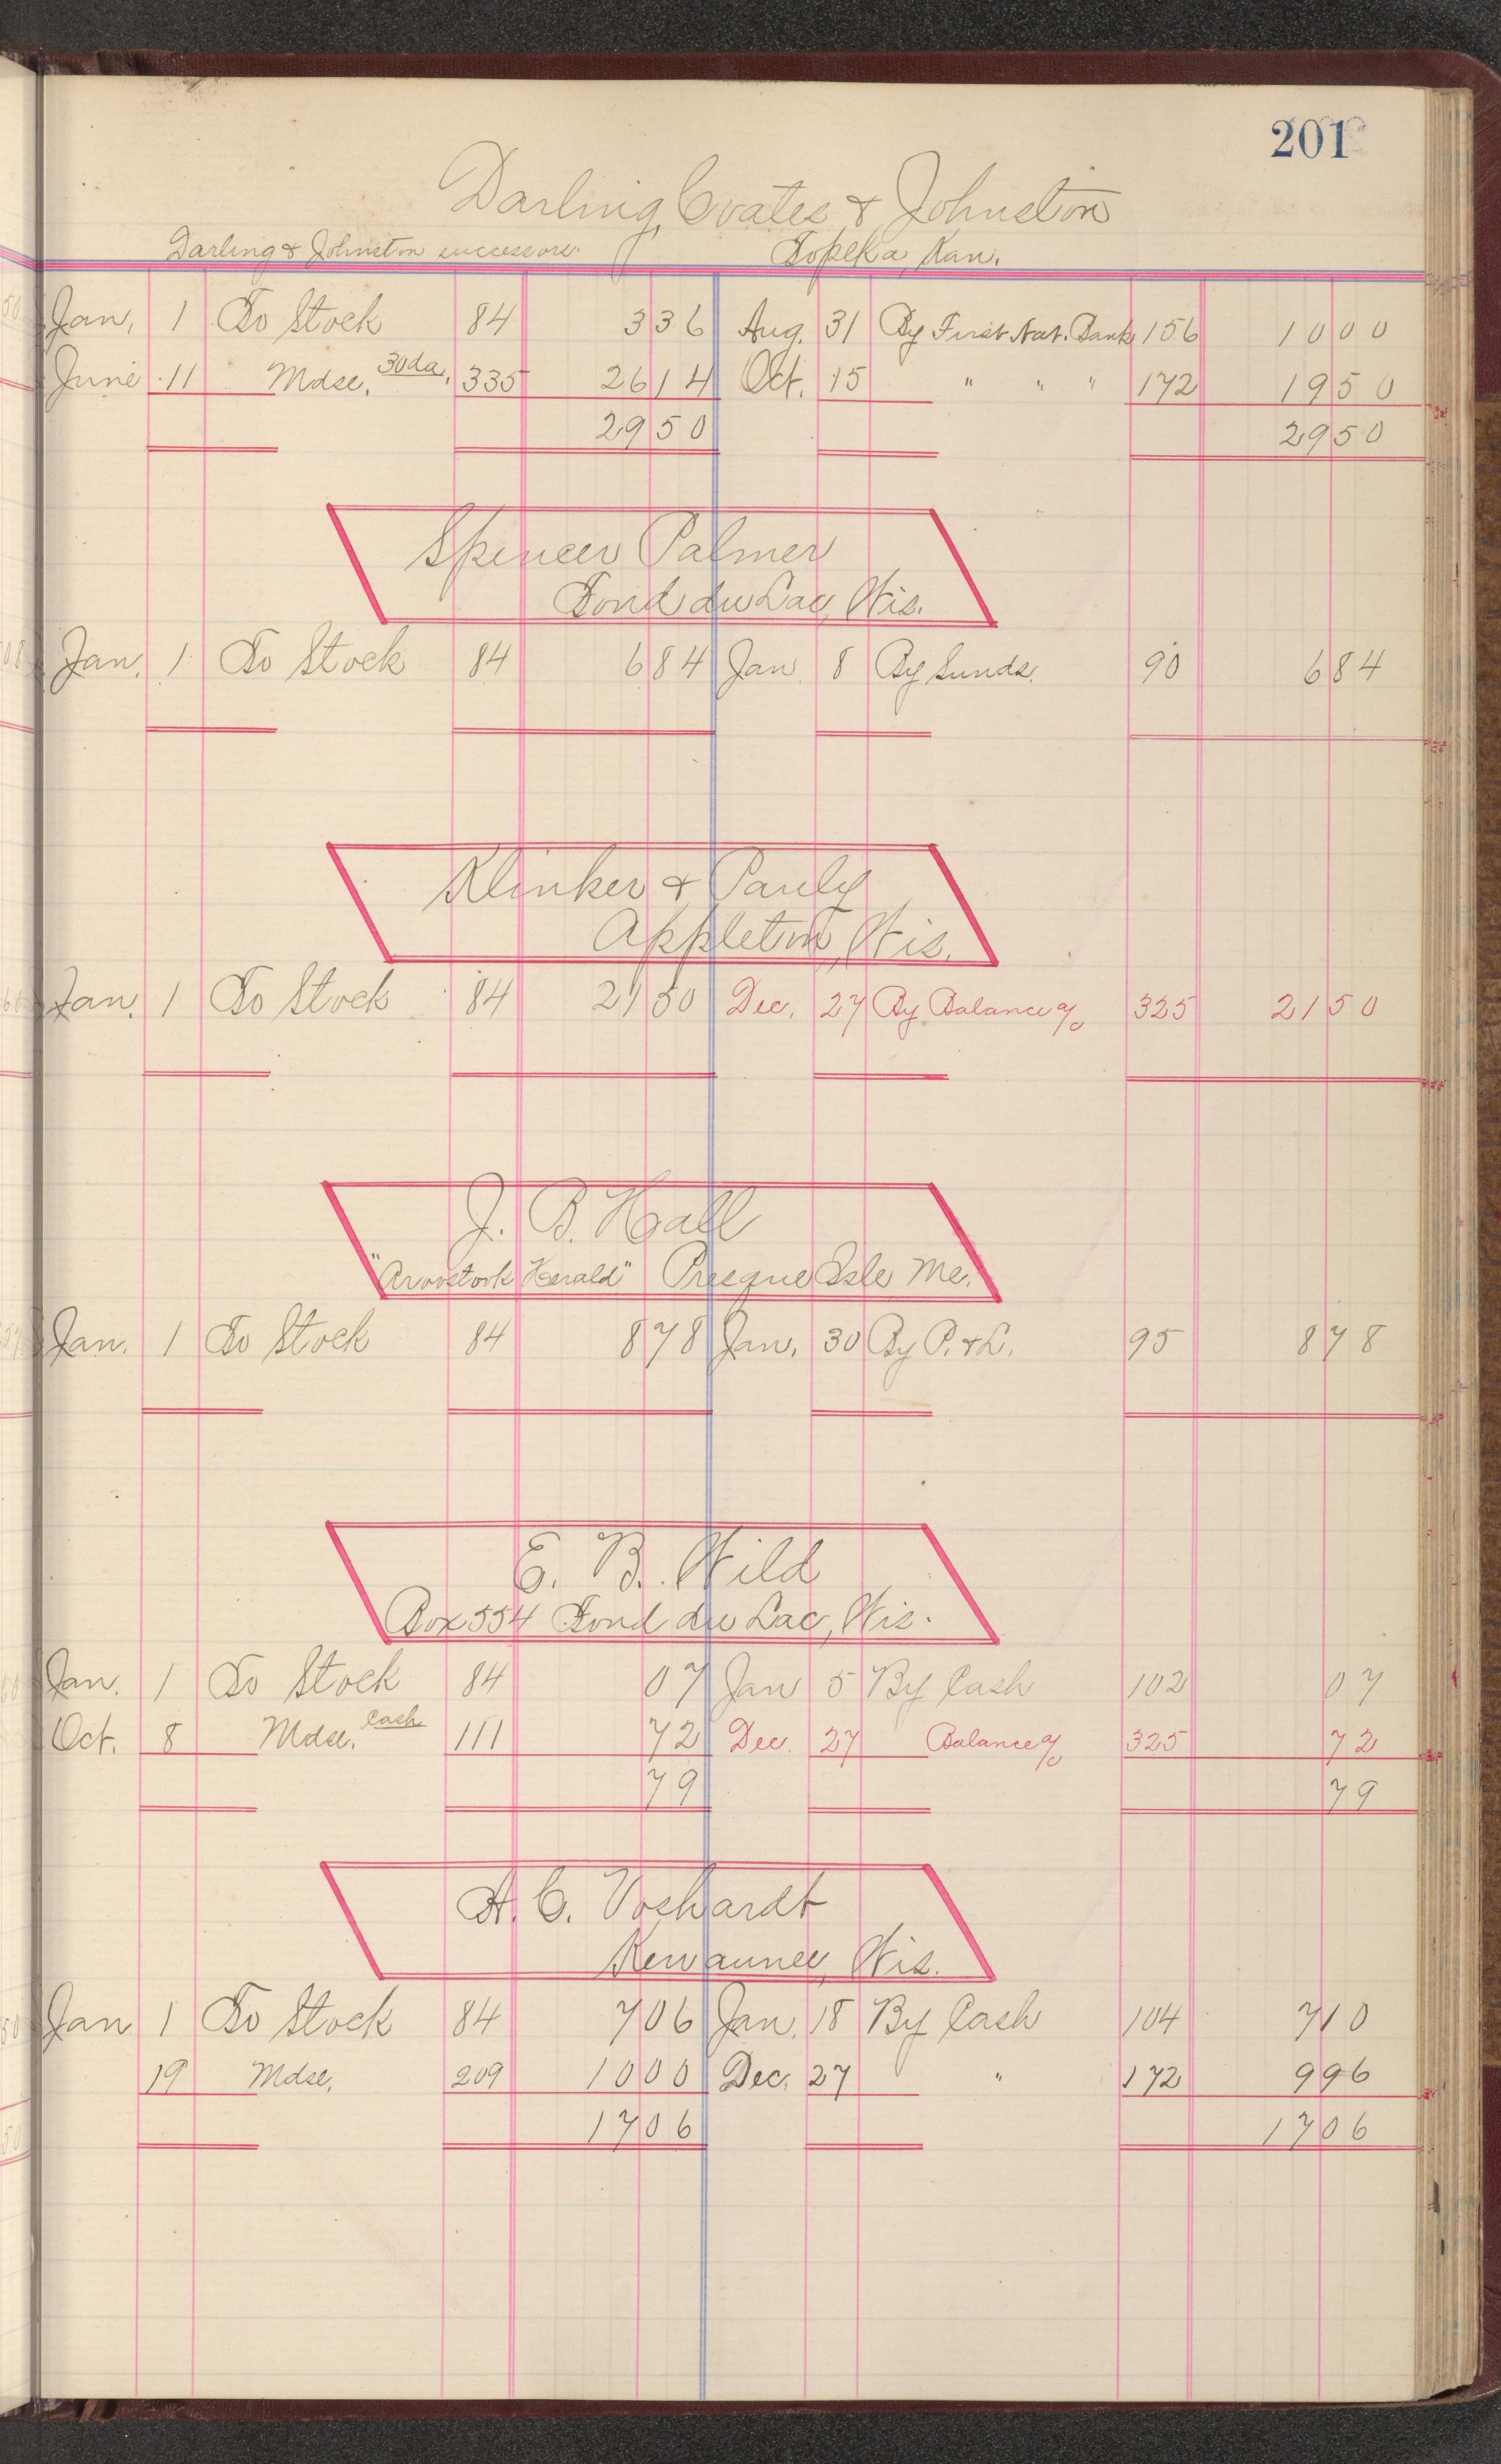 201
Darling, Coates & Johnston
Darling & Johnston successors. Topeka, Kan.
Jan. 1 To Stock 84 336 Aug. 31 By First Nat. Bank 156 1000
June 11 Mdse. 30 da. 335 2614 Oct. 15 " " " 172 1950
2950 2950
Spencer Palmer
Fond du Lac, Wis.
Jan. 1 To Stock 84 684 Jan 8 By Sunds. 90 684
Klinker & Pauly
Appleton, Wis.
Jan. 1 To Stock 84 2150 Dec. 27 By Balance a/c 325 2150
J. B. Hall
"Aroostook Herald" Presque Isle, Me.
Jan. 1 To Stock 84 878 Jan. 30 By P. & L. 95 878
E. B. Wild
Box 554 Fond du Lac, Wis.
Jan. 1 To Stock 84 07 Jan 5 By Cash 102 07
Oct. 8 Mdse. Cash 111 72 Dec. 27 Balance a/c 325 72
79 79
H. C. Voshardt
Kewaunee, Wis.
Jan 1 To Stock 84 706 Jan. 18 By Cash 104 710
19 Mdse. 209 1000 Dec. 27 " 172 996
1706 1706